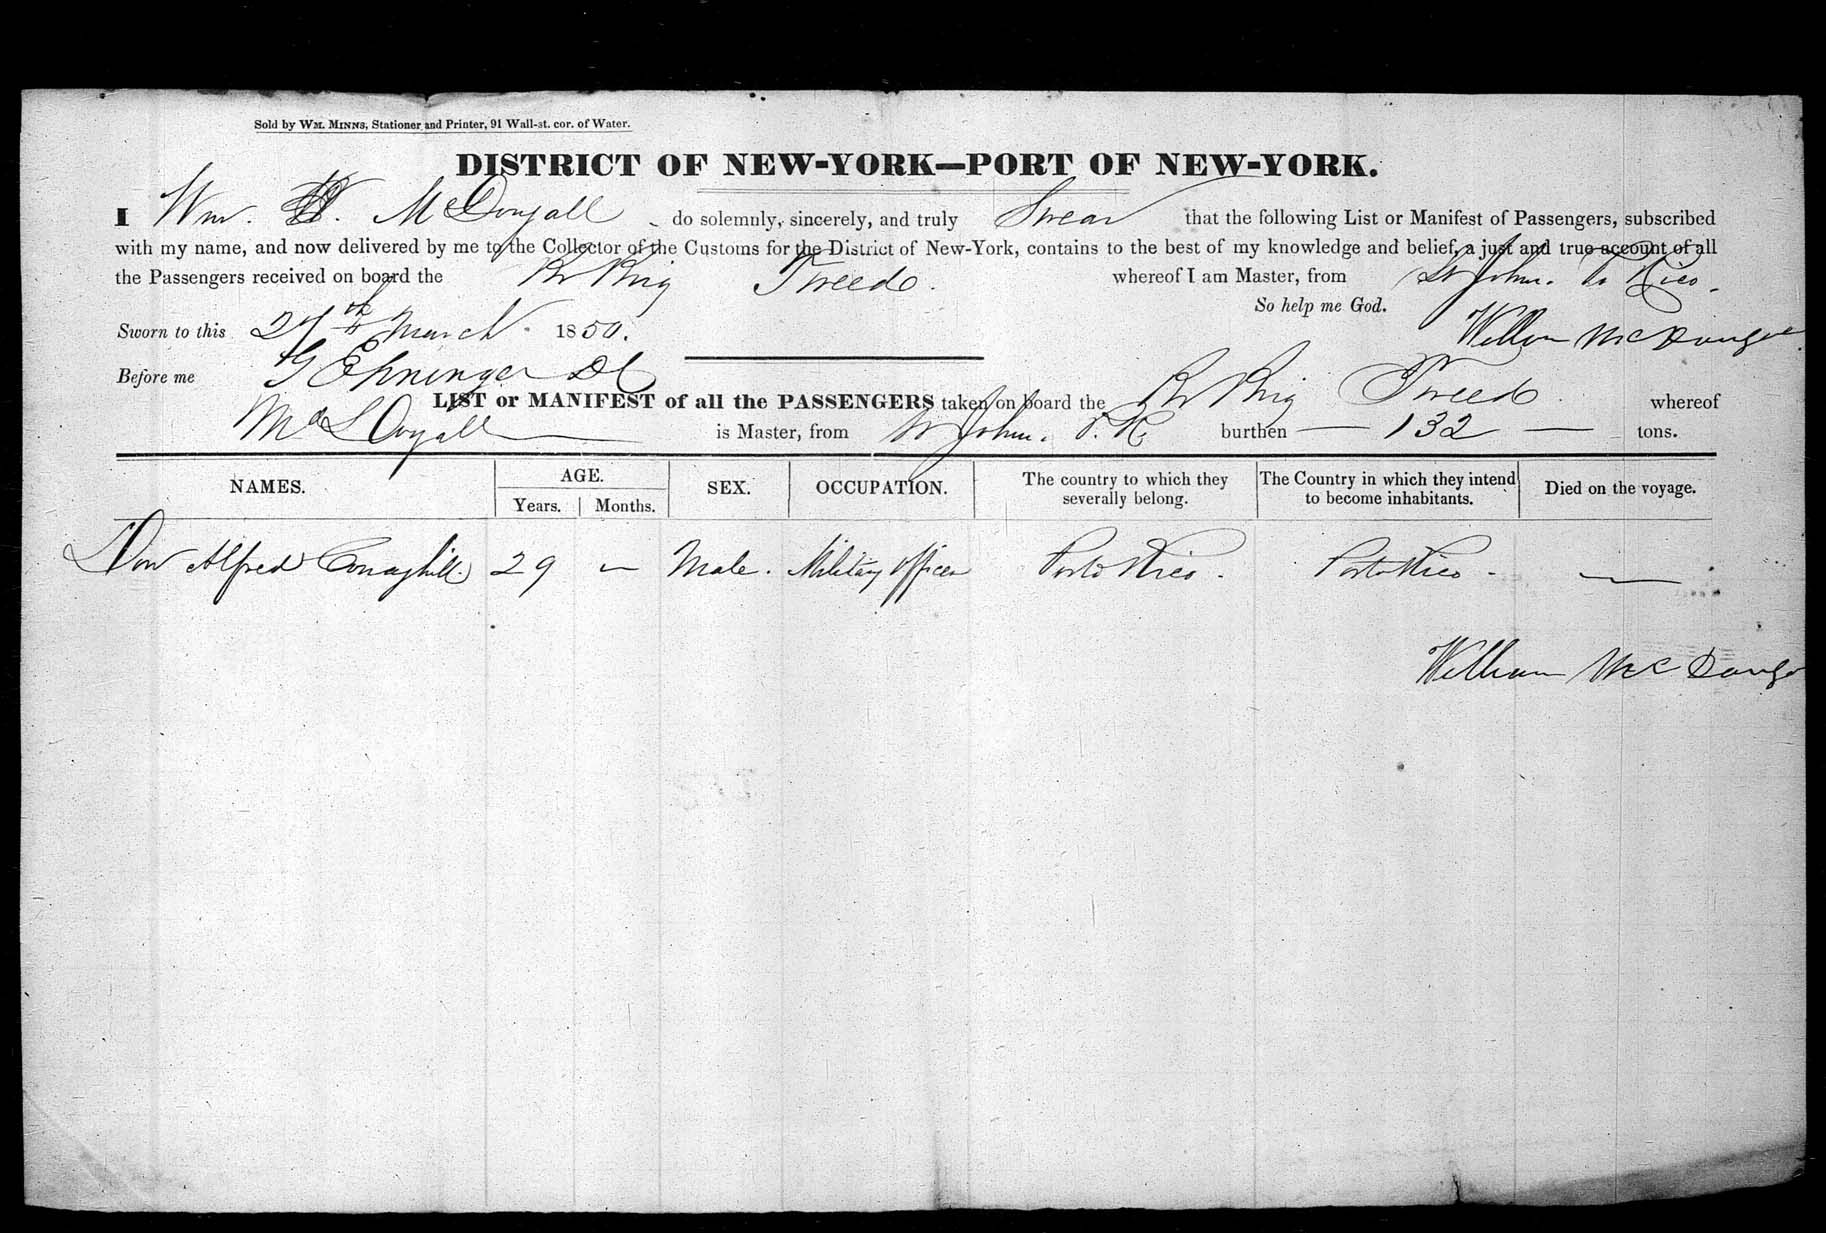 Sold by WM. MINNS, Stationer and Printer, 91 Wall-st. cor. of Water.
DISTRICT OF NEW-YORK—PORT OF NEW-YORK.
I Wm. McDougall do solemnly, sincerely, and truly Swear that the following List or Manifest of Passengers, subscribed
with my name, and now delivered by me to the Collector of the Customs for the District of New-York, contains to the best of my knowledge and belief, a just and true account of all
the Passengers received on board the Br Brig Tweed. whereof I am Master, from St John. Po Rico.
So help me God.
Sworn to this 27th March 1850.
William McDougal
Before me G Ehninger DC
LIST or MANIFEST of all the PASSENGERS taken on board the Br Brig Tweed whereof
McDougall is Master, from St John. P. R. burthen — 132 — tons.
NAMES. AGE. SEX. OCCUPATION. The country to which they severally belong. The Country in which they intend to become inhabitants. Died on the voyage.
Years. Months.
Don Alfred 29 — Male. Military officer Porto Rico. Porto Rico. —
William McDoug